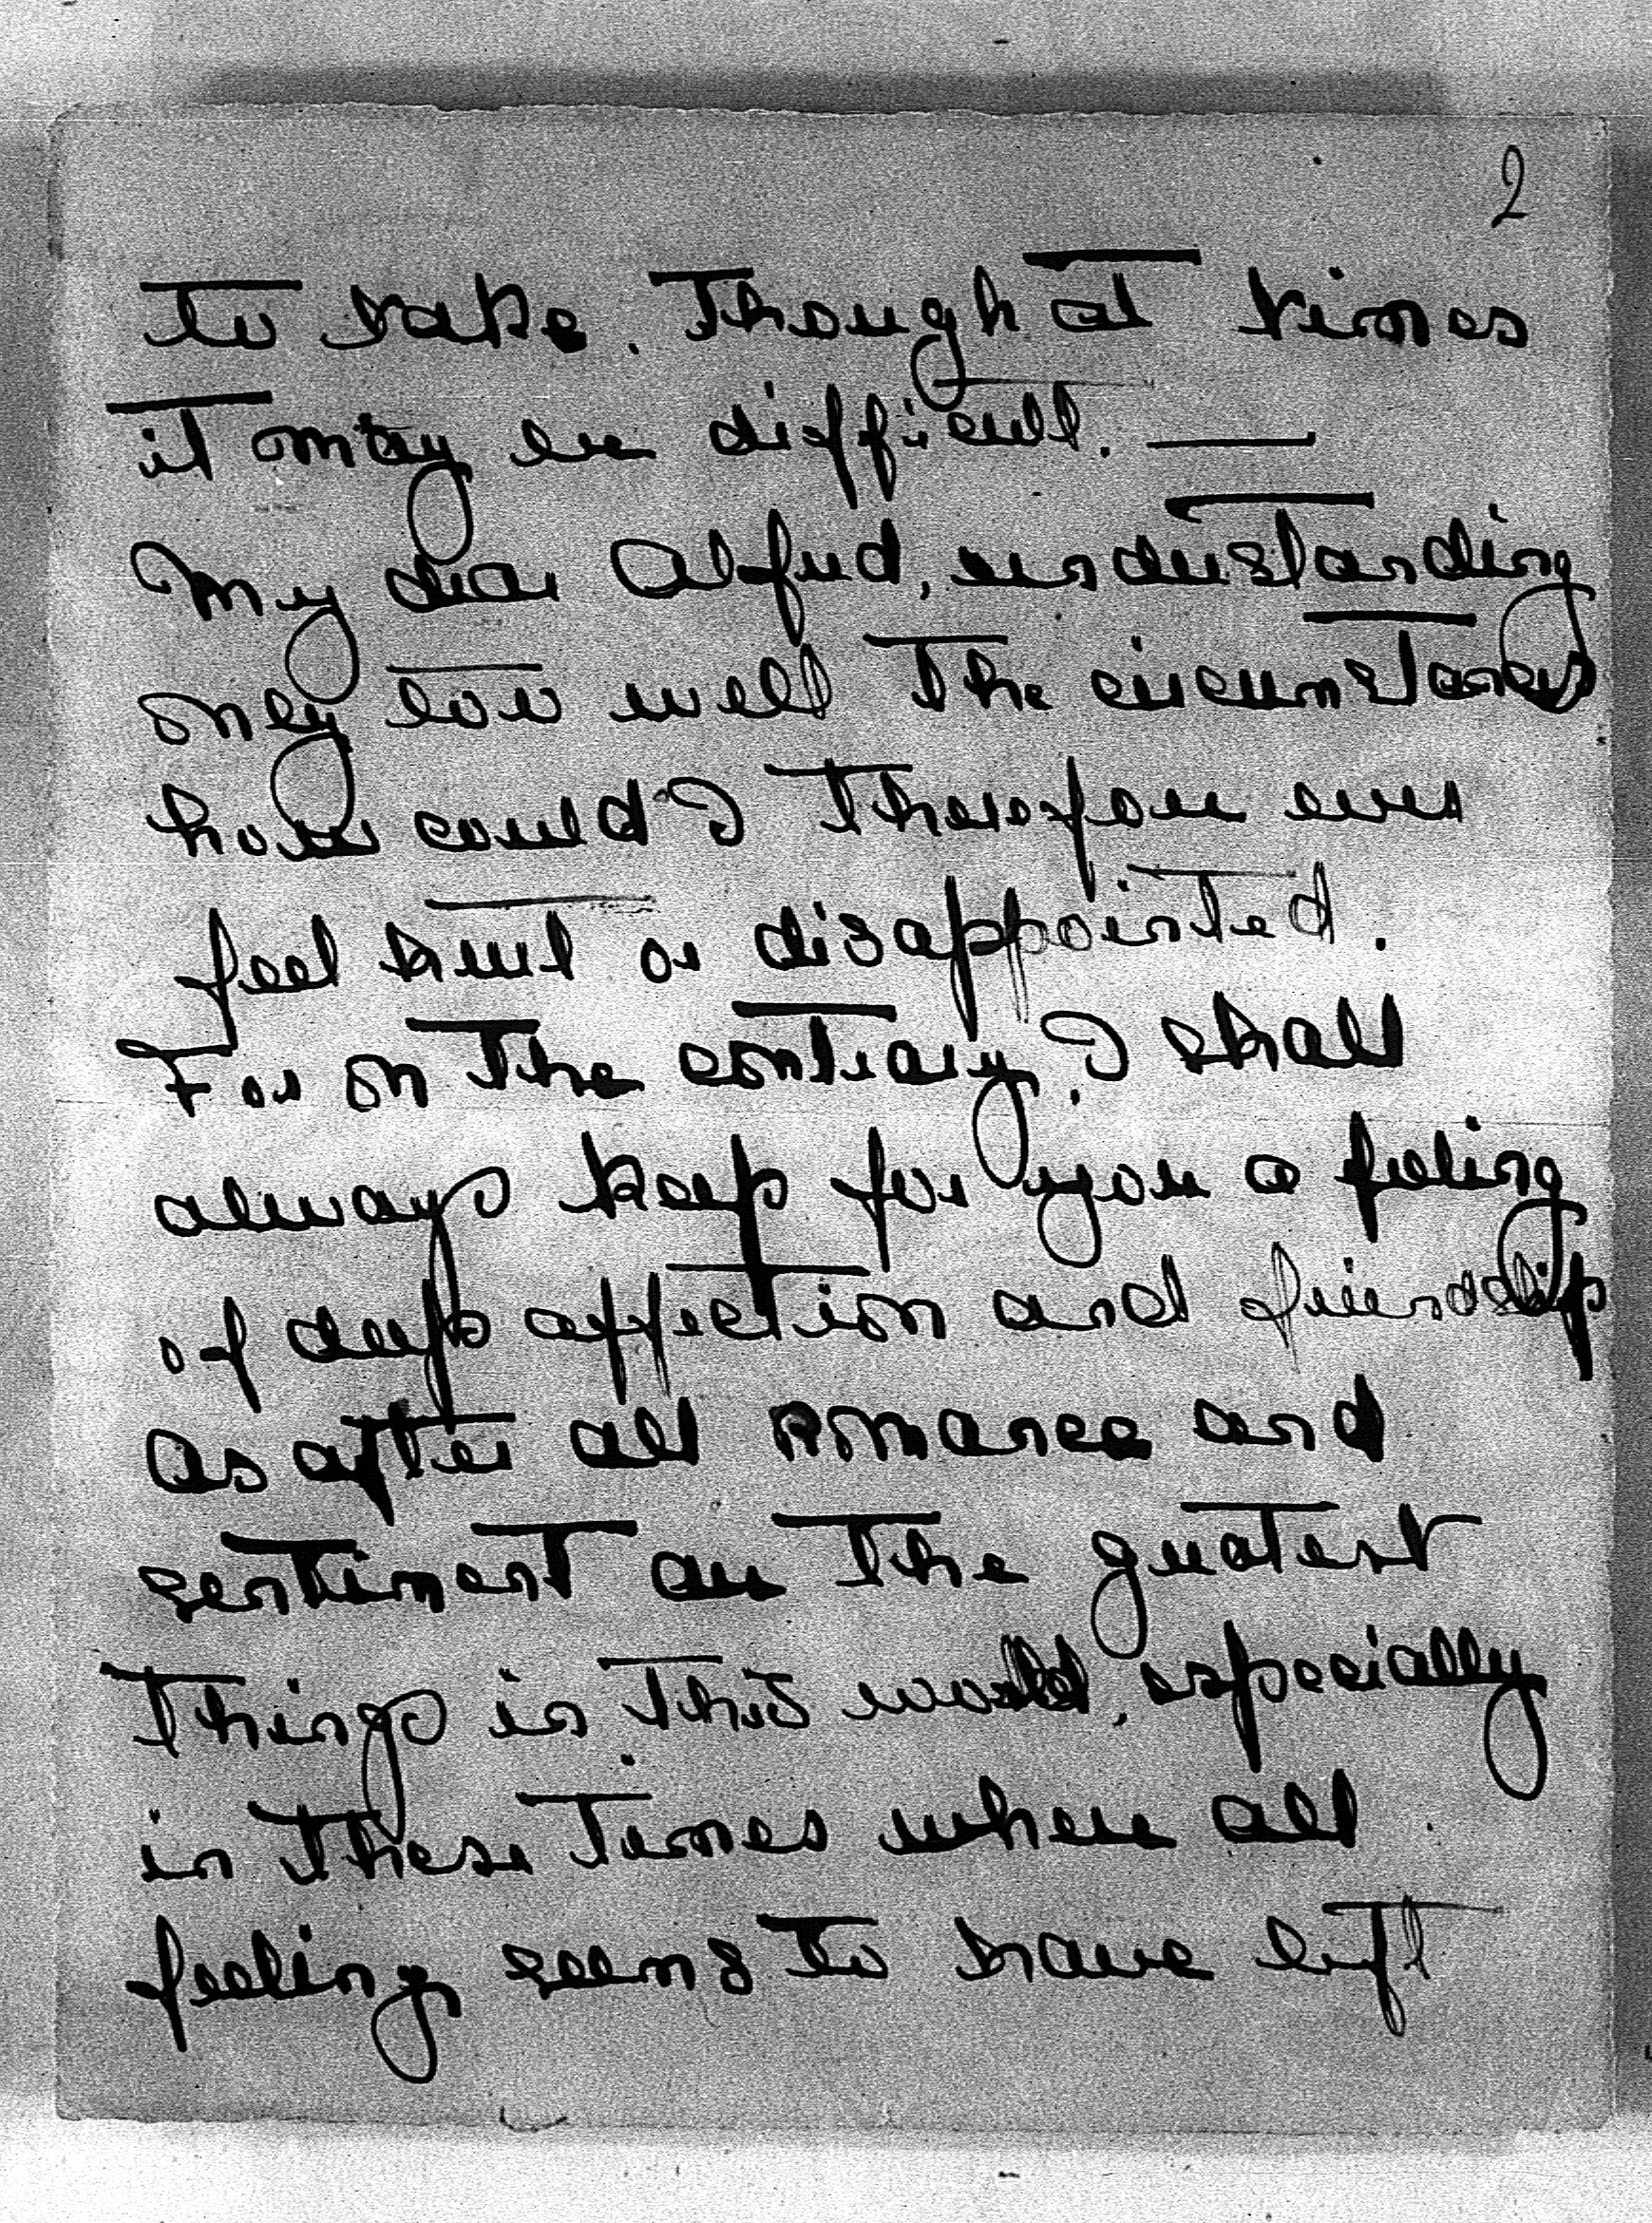 2
to take. Though at times
it may be difficult. —
My dear Alfred, understanding
only too well the circumstances
how could I therefore ever
feel hurt or disappointed.
For on the contrary, I shall
always keep for you a feeling
of deep affection and friendship
as after all romance and
sentiment are the greatest
things in this world, especially
in these times where all
feeling seems to have left